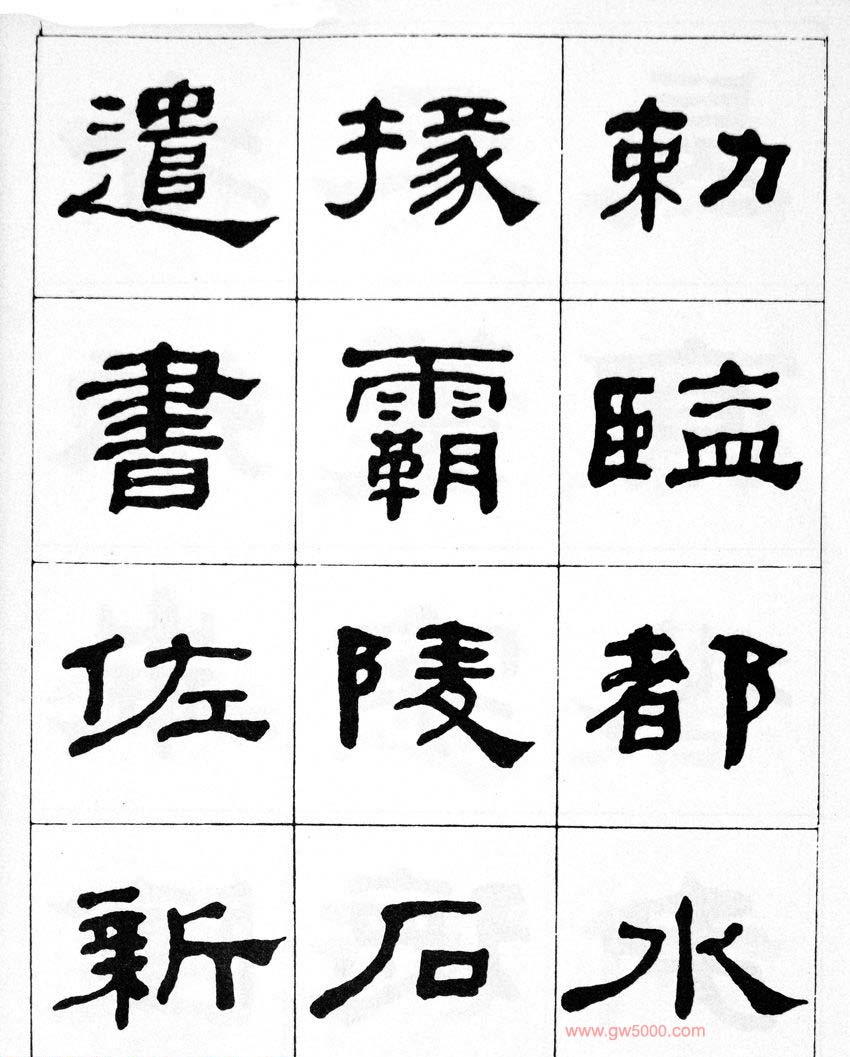 勅監都水
掾霸陵石
遣書佐新
www.gw5000.com